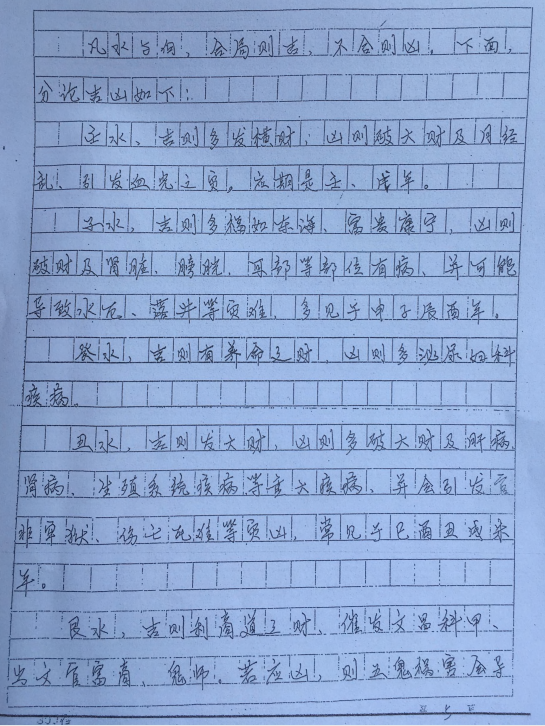 凡水与向，合局则吉，不合则凶。下面，
分论吉凶如下：
壬水、吉则多发横财；凶则破大财及月经
乱、引发血光之灾。应期是壬、戌年。
子水、吉则多福如东海、富贵康宁，凶则
破财及肾脏、膀胱、耳部等部位有病、并可能
导致水厄、落井等灾难，多见于申子辰酉年。
癸水，吉则有养命之财，凶则多泌尿妇科
疾病。
丑水，吉则发大财，凶则多破大财及肝病、
肾病、生殖系统疾病等重大疾病、并会引发官
非牢狱、伤亡死难等灾凶，常见于巳酉丑戌未
年。
艮水，吉则利商道之财、催发文昌科甲、
出文官富商、儒师。若应凶，则五鬼祸害
第 5 页